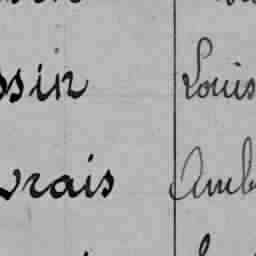 ssin Louis
vrais Amb